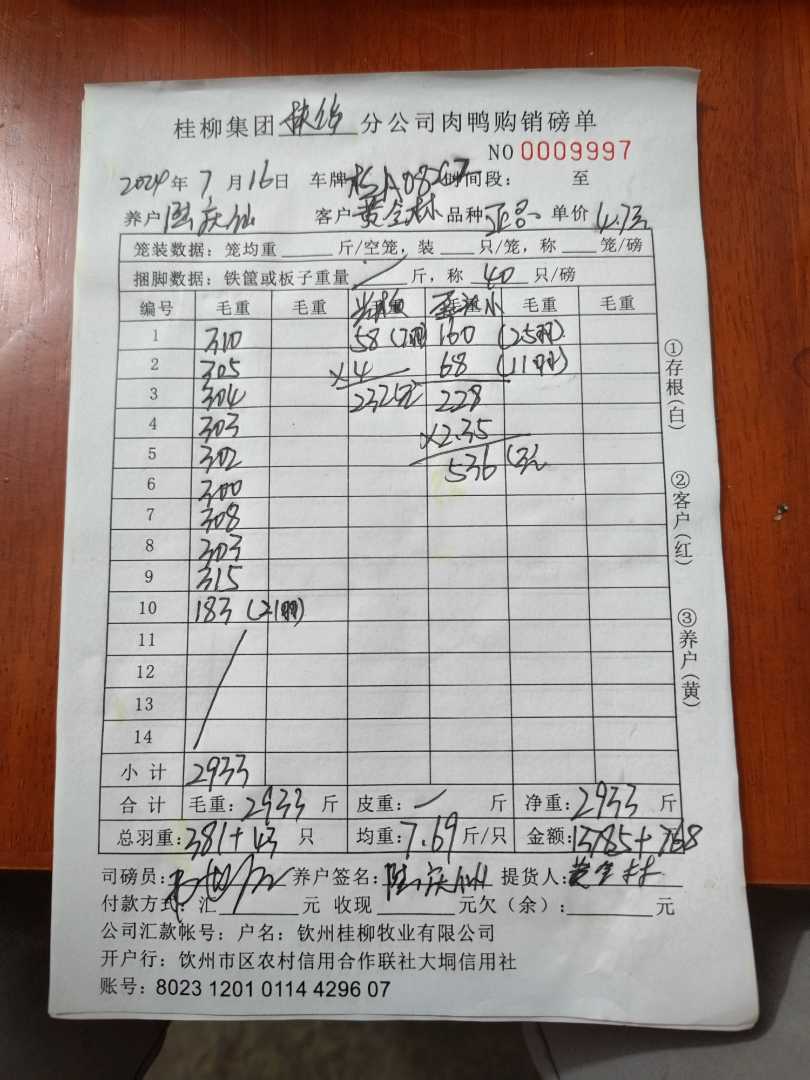 桂柳集团 分公司肉鸭购销磅单
NO 0009997
2024年 7月16日 车牌 时间段: 至
养户 陆庆仙 客户 黄全林 品种 单价 4.7元
笼装数据: 笼均重 斤/空笼, 装 只/笼, 称 笼/磅
捆脚数据: 铁篦或板子重量 / 斤, 称 40 只/磅
编号 毛重 毛重 毛重 毛重 毛重 毛重
1 310 58 (7羽) 160 (25羽)
2 305 ×4 68 (11羽)
3 304 232元 228
4 303 ×2.35
5 302 536元
6 300
7 308
8 303
9 315
10 183 (21羽)
11
12
13
14
小计 2933
合计 毛重: 2933 斤 皮重: 斤 净重: 2933 斤
总羽重: 381+43 只 均重: 7.69 斤/只 金额: 13785+768
司磅员: 养户签名: 陆庆仙 提货人: 黄全林
付款方式: 汇 元 收现 元欠(余): 元
公司汇款帐号: 户名: 钦州桂柳牧业有限公司
开户行: 饮州市区农村信用合作联社大垌信用社
账号: 8023 1201 0114 4296 07
①存根(白)
②客户(红)
③养户(黄)